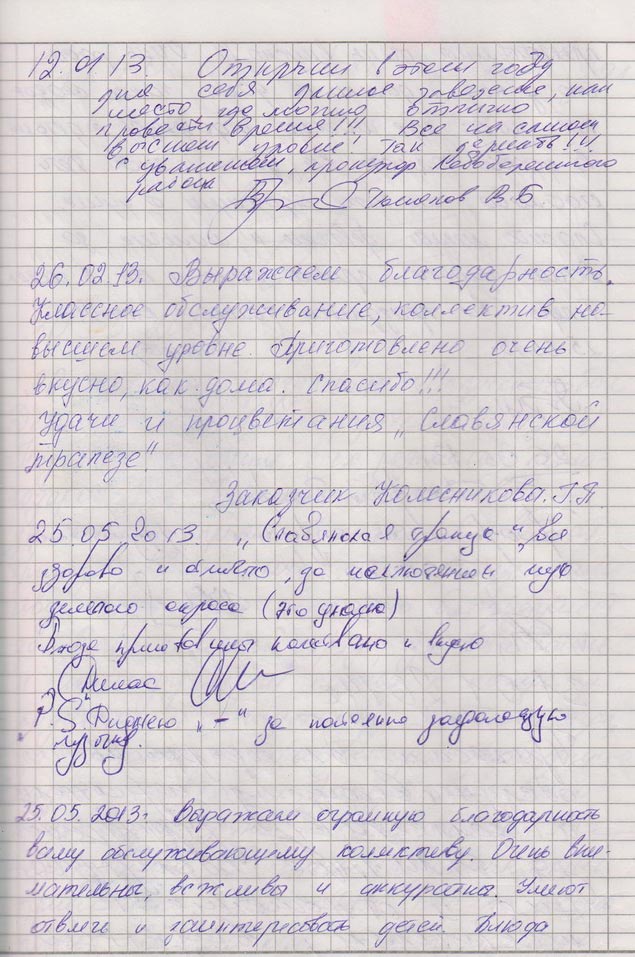 12.01 13. Открыли в этом году
для себя данное заведение, как
место где можно отлично
провести время!!! Все на самом
высшем уровне! Так держать!!!
С уважением, прокурор
района В.Б.
26.02.13. Выражаем благодарность.
Классное обслуживание, коллектив на
высшем уровне. Приготовлено очень
вкусно, как дома. Спасибо!!!
Удачи и процветания „Славянской
трапезе"
Заказчик Колесникова. Г.П
25.05.2013. „Славянская трапеза" Все
здорово и
(это ужасно)
Блюда приготовлены и вкусно
P.S. Диджею „-" за
музыку.
25.05.2013г Выражаем огромную благодарность
всему обслуживающему коллективу. Очень вни-
мательны, вежливы и аккуратны. Умеют
отвлечь и заинтересовать детей. Блюда